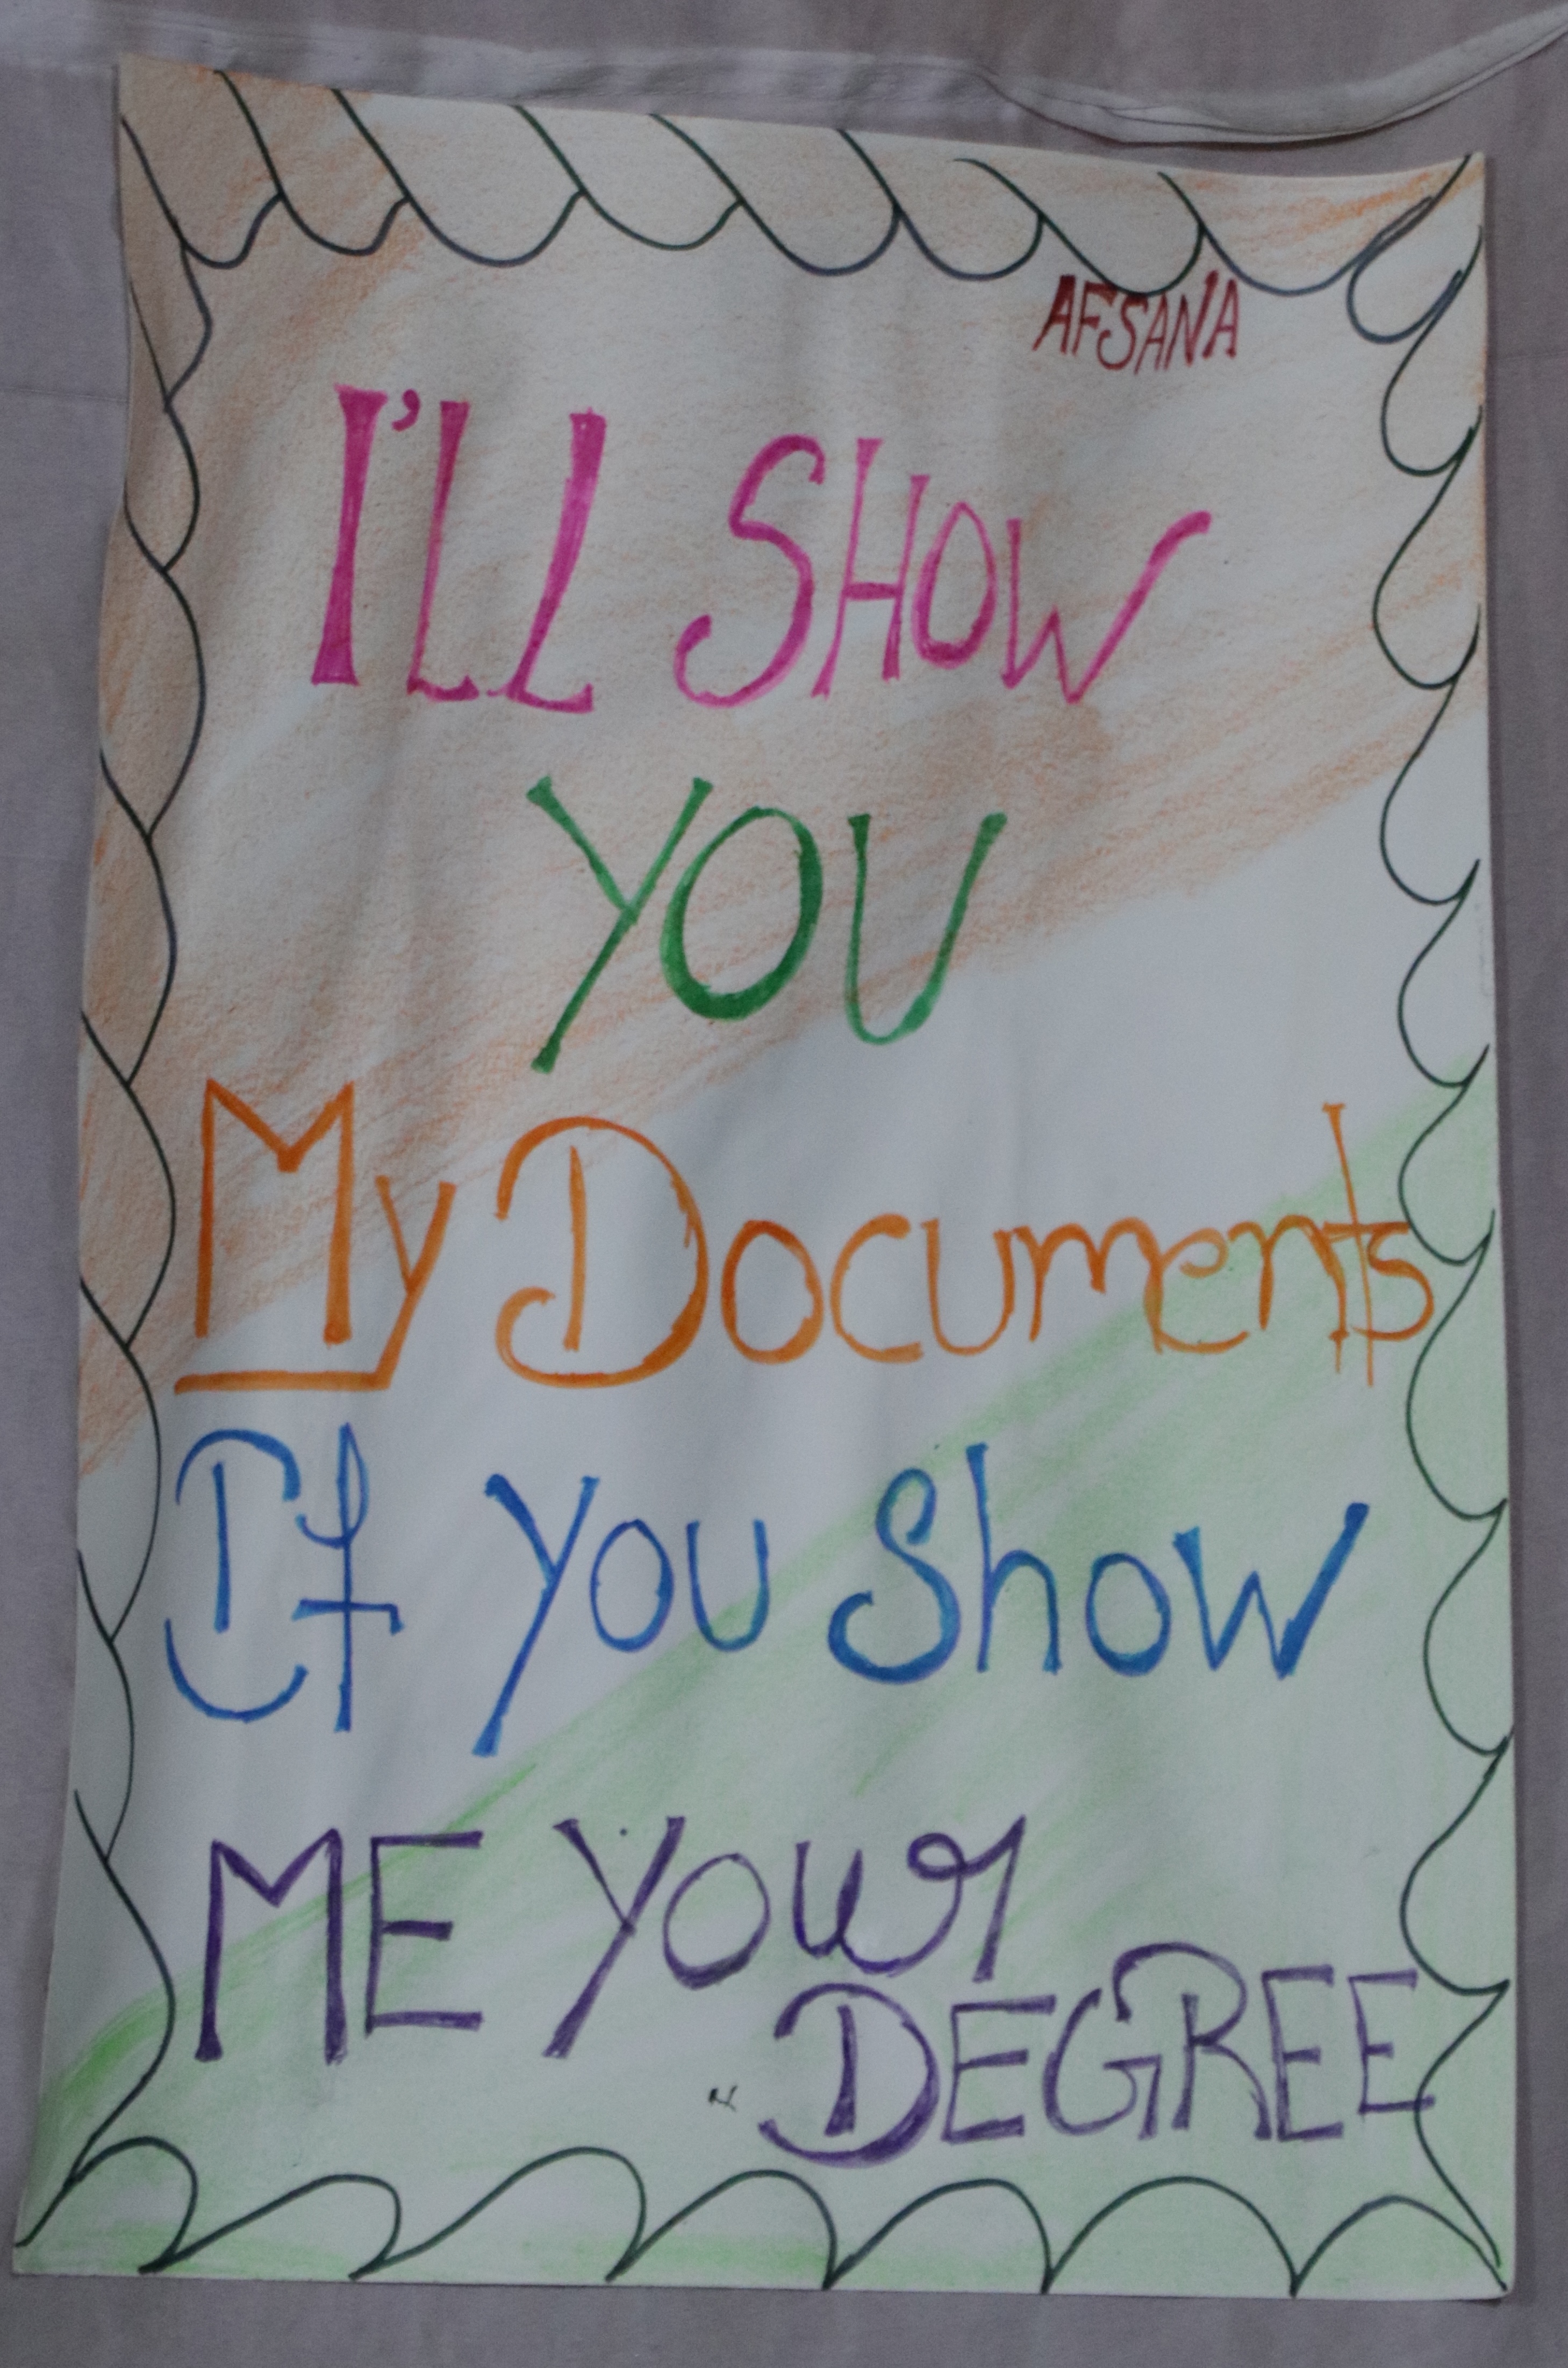 AFSANA
I'LL SHOW
YOU
My Documents
If you Show
ME your
DEGREE